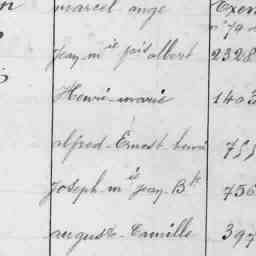 marcel ange Exem
n° 79
Jean-m is albert 2328
Henri-marie 1403
alfred-Ernest henri 755
Joseph-m is Jean-Bte 756
auguste-Camille 397